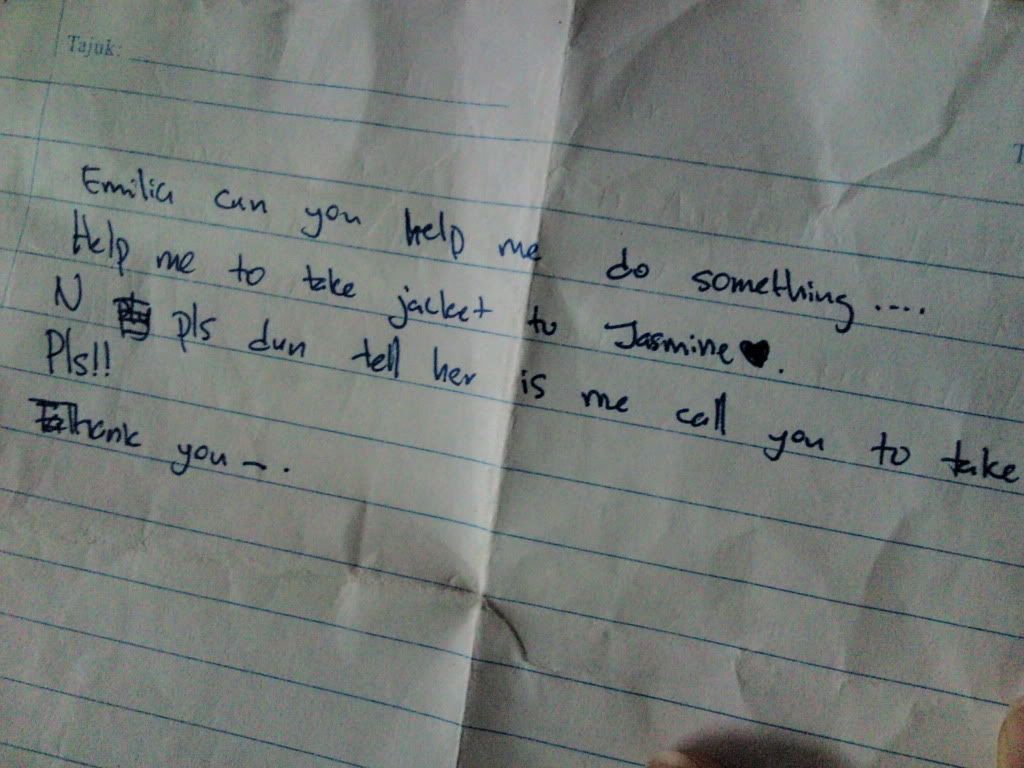 Tajuk:
Emilia can you help me do something....
Help me to take jacket to Jasmine♥.
N pls dun tell her is me call you to take
Pls!!
Thank you~.